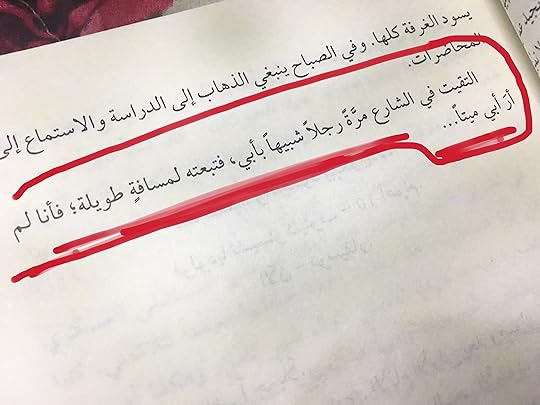 يسود الغرفة كلها. وفي الصباح ينبغي الذهاب إلى الدراسة والاستماع إلى
المحاضرات.
التقيت في الشارع مرَّةً رجلاً شبيهاً بأبي، فتبعته لمسافةٍ طويلة؛ فأنا لم
أرَ أبي ميتاً...